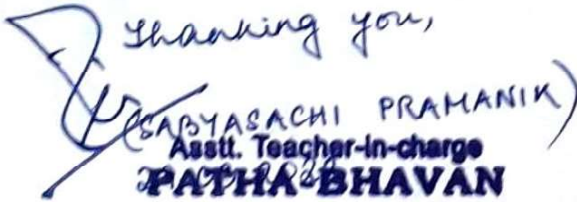 Thanking you,
(SABYASACHI PRAMANIK)
Asstt. Teacher-in-charge
PATHA-BHAVAN